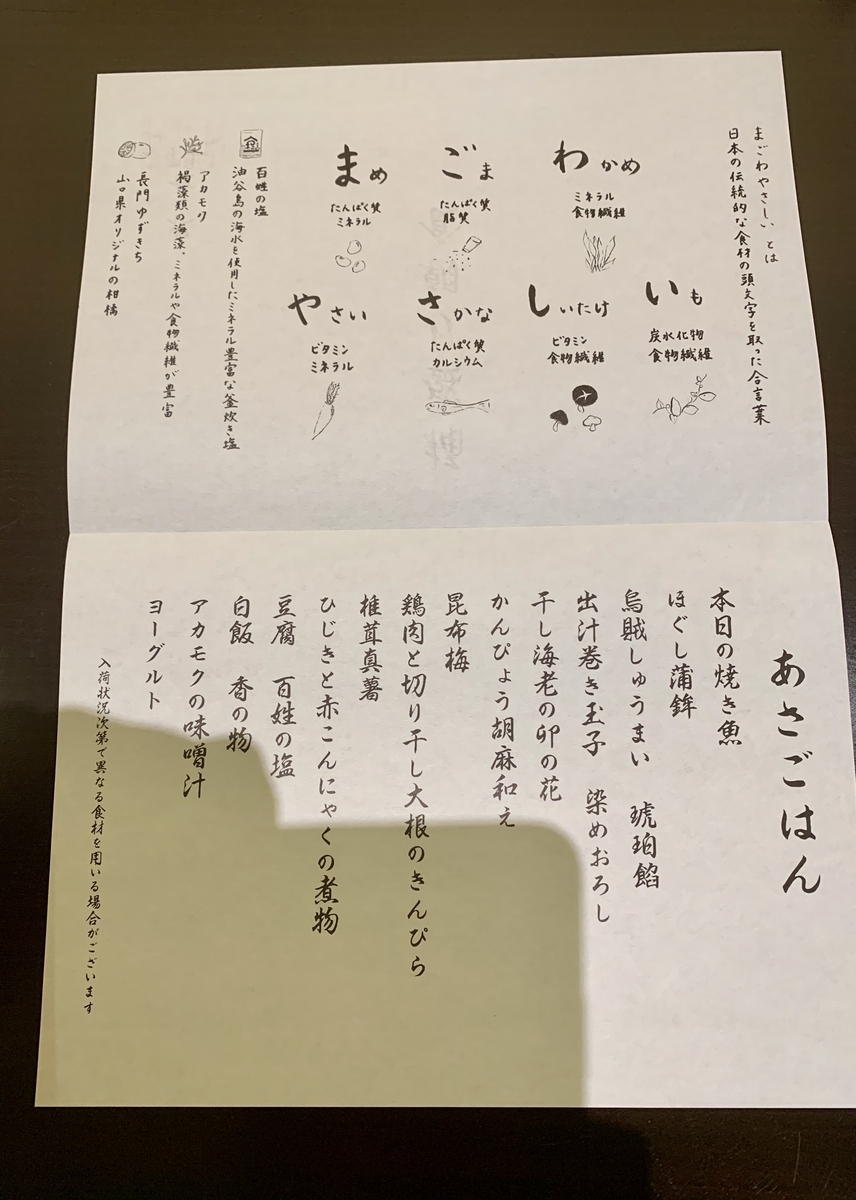 まごわやさしい とは
日本の伝統的な食材の頭文字を取った合言葉
まめ
たんぱく質
ミネラル
ごま
たんぱく質
脂質
わかめ
ミネラル
食物繊維
やさい
ビタミン
ミネラル
さかな
たんぱく質
カルシウム
しいたけ
ビタミン
食物繊維
いも
炭水化物
食物繊維
百姓の塩
油谷島の海水を使用したミネラル豊富な釜炊き塩
アカモク
褐藻類の海藻、ミネラルや食物繊維が豊富
長門ゆずきち
山口県オリジナルの柑橘
あさごはん
本日の焼き魚
ほぐし蒲鉾
烏賊しゅうまい 琥珀餡
出汁巻き玉子 染めおろし
干し海老の卯の花
かんぴょう胡麻和え
昆布梅
鶏肉と切り干し大根のきんぴら
椎茸真薯
ひじきと赤こんにゃくの煮物
豆腐 百姓の塩
白飯 香の物
アカモクの味噌汁
ヨーグルト
入荷状況次第で異なる食材を用いる場合がございます